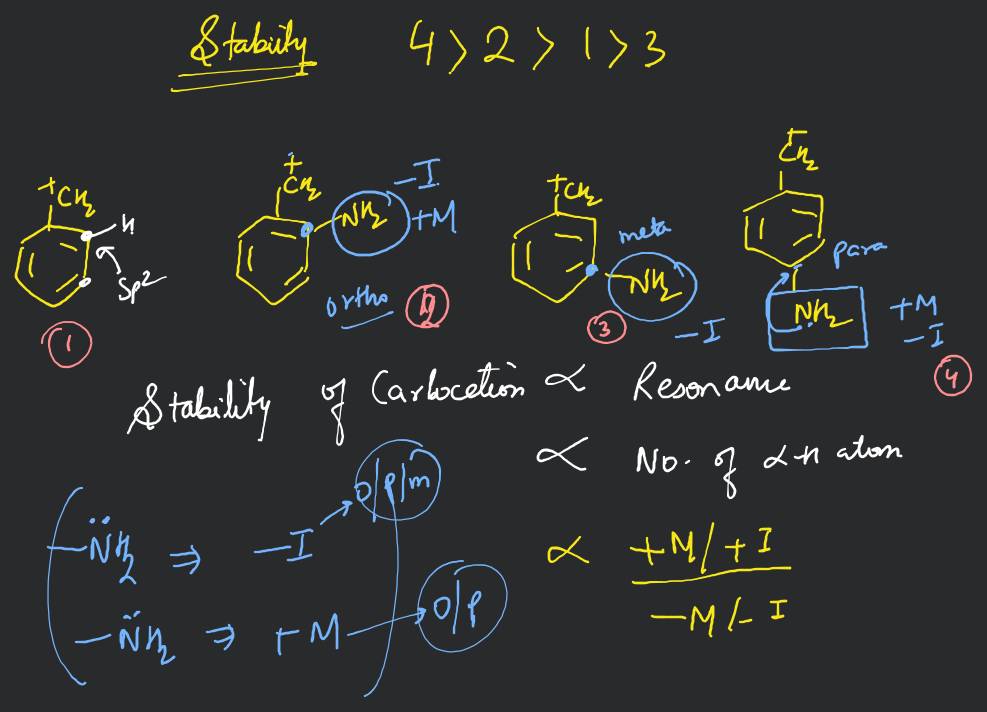 Stability 4 > 2 > 1 > 3
+CH2
H
Sp2
1
+
CH2
NH2
-I
+M
ortho
2
+CH2
meta
NH2
3
-I
+
CH2
para
NH2
+M
-I
4
Stability of Carbocation ∝ Resonance
∝ No. of α-H atom
∝ +M/+I
-M/-I
-N̈H2 ⇒ -I → O/p/m
-N̈H2 ⇒ +M → O/p